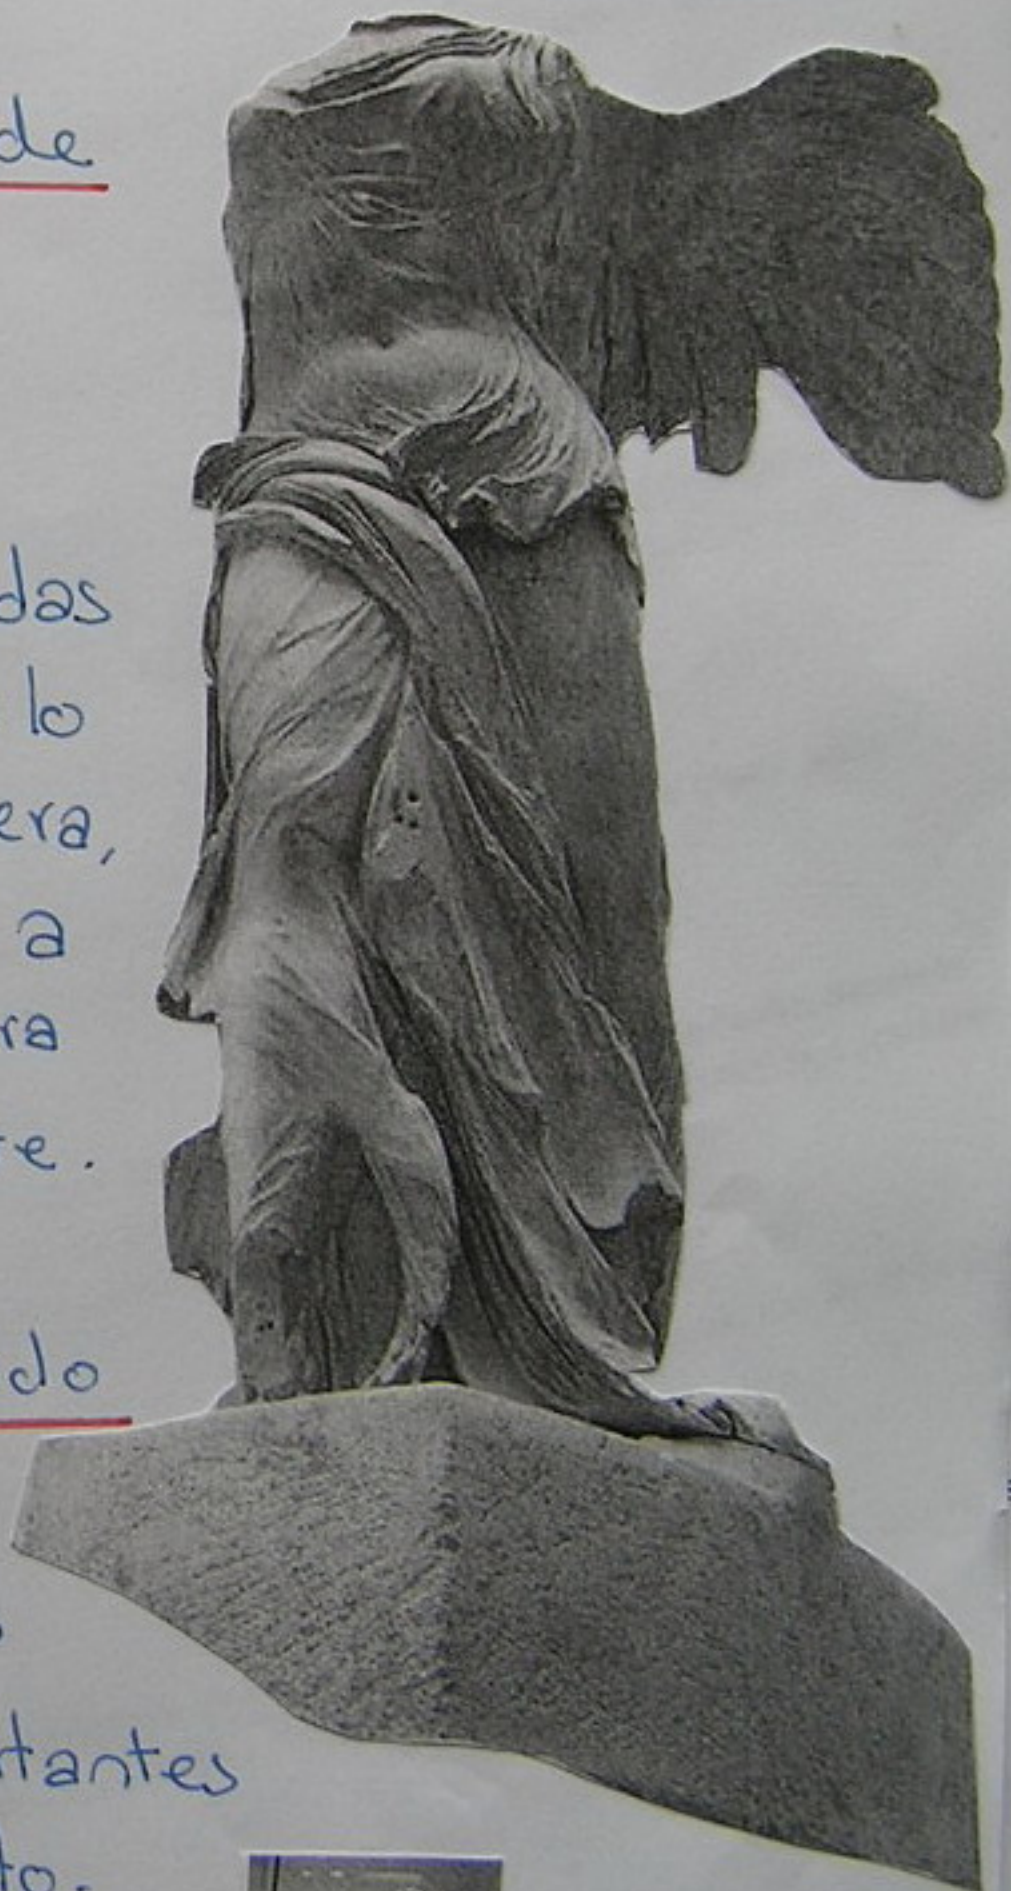 de
das
lo
era,
a
ra
re.
do
tantes
to.